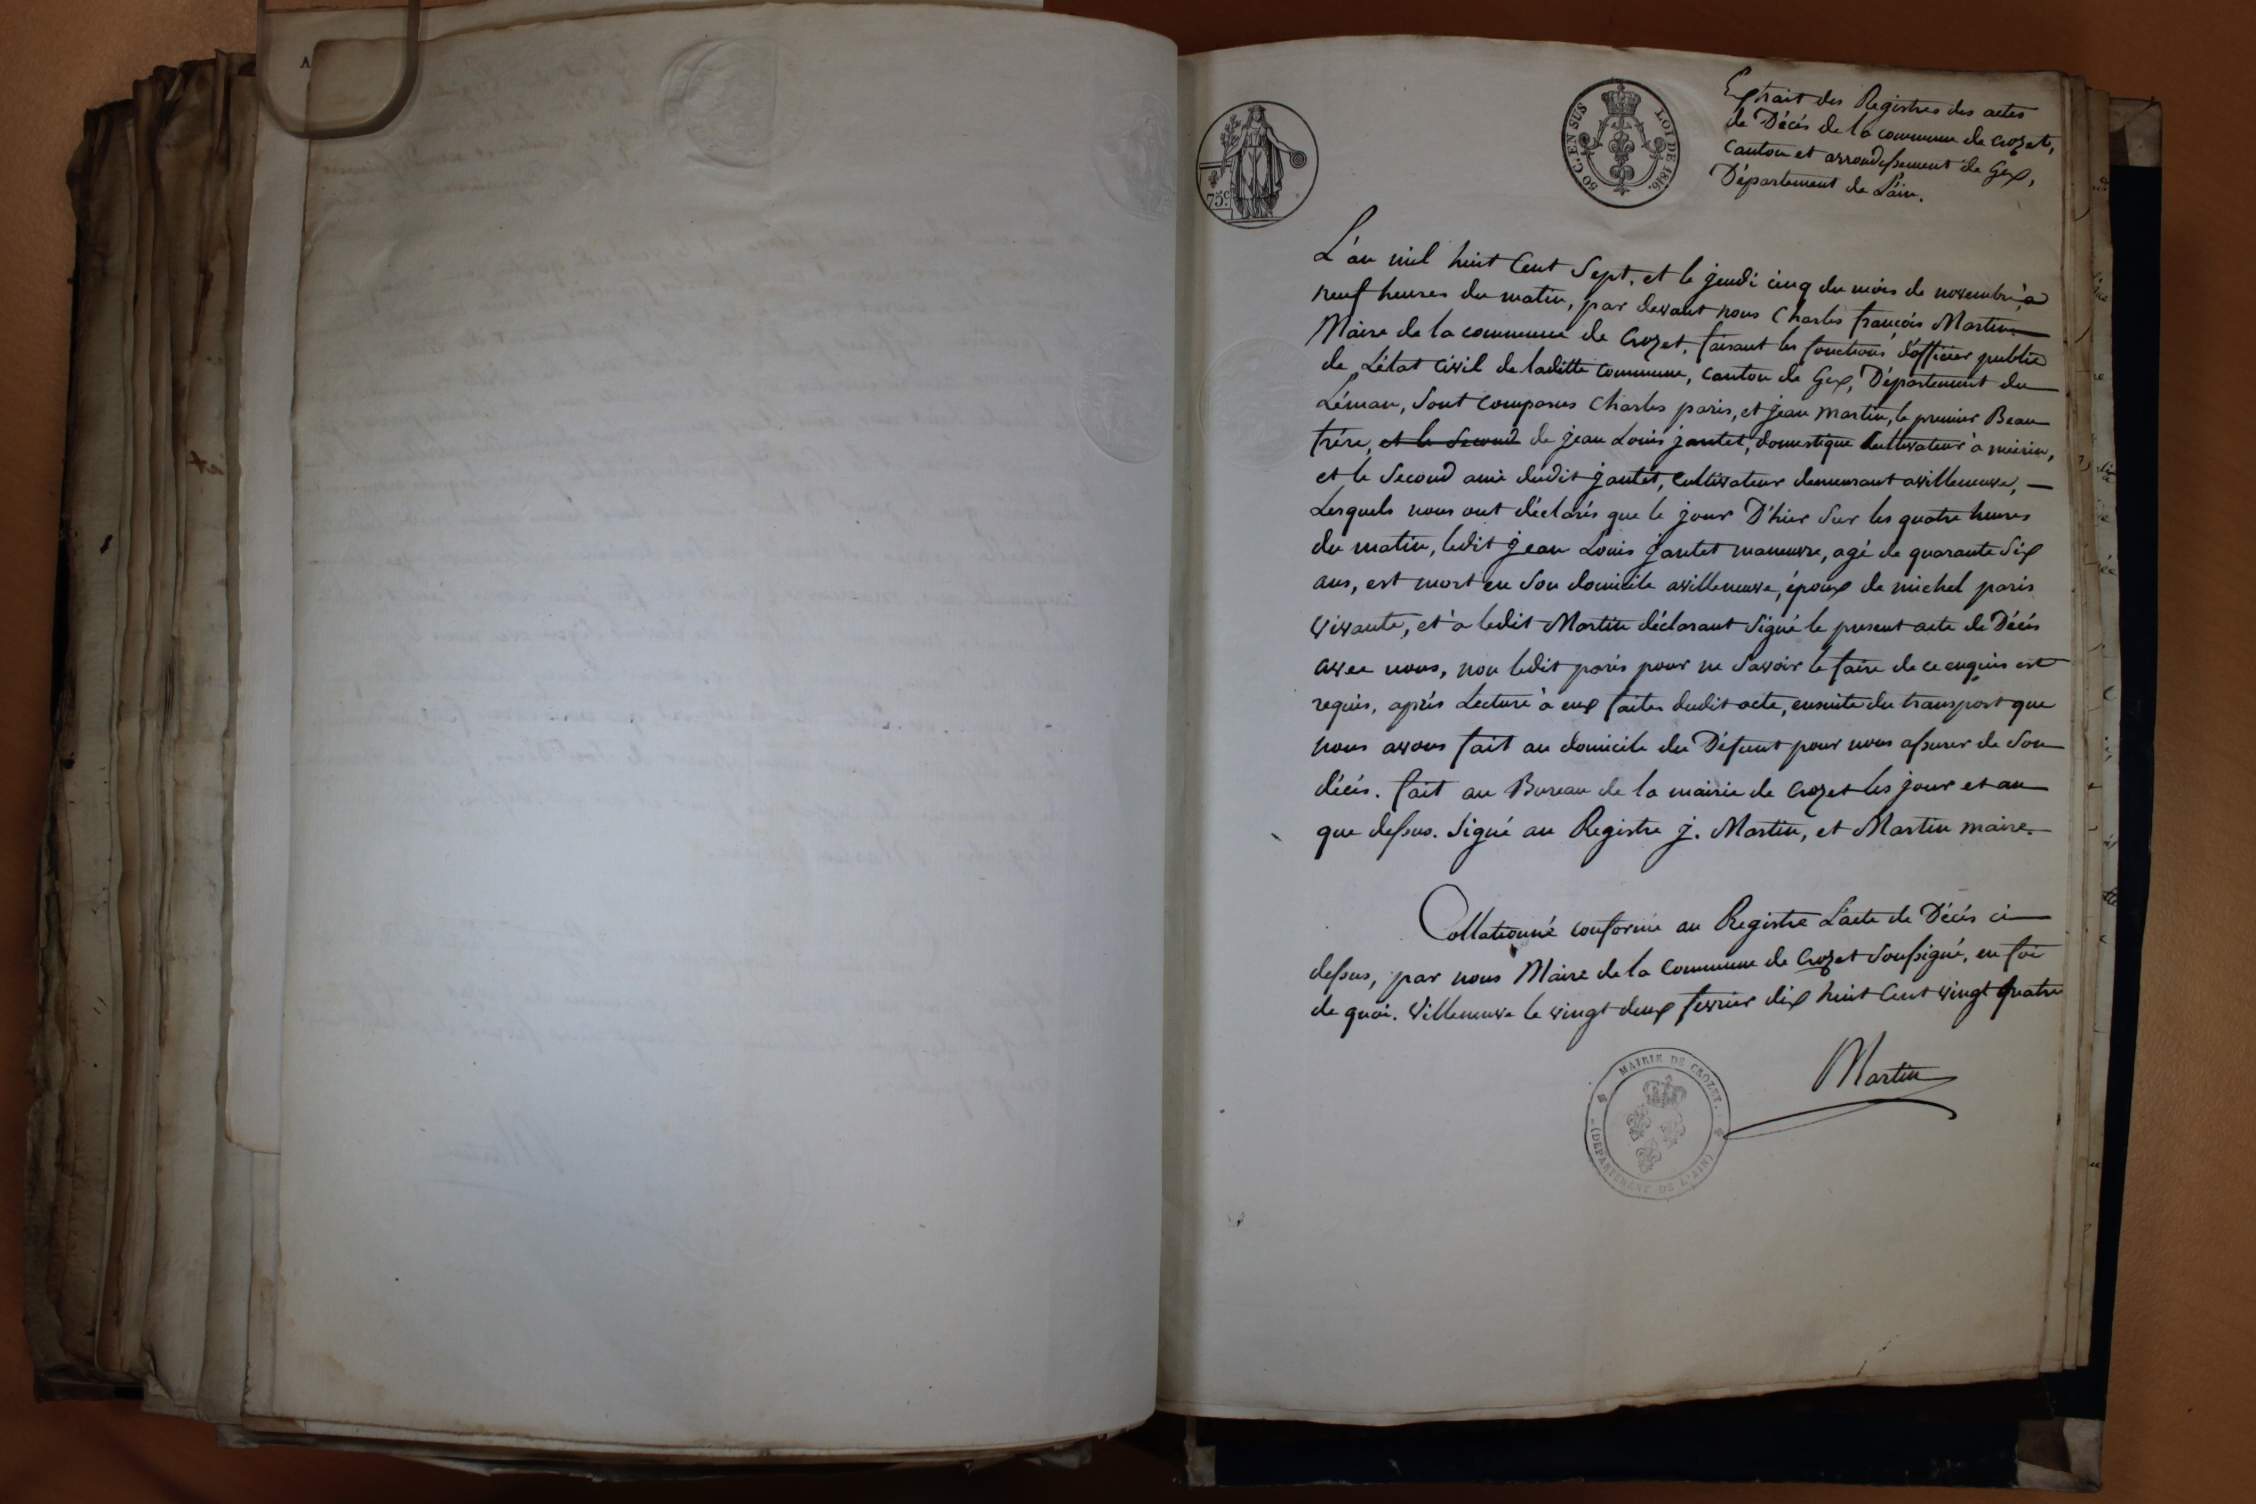 75.c
50 C. EN SUS
LOI DE 1816.
Extrait des Registres des actes
de Décés de la commune de Crozet,
canton et arrondissement de Gex,
Département de L'ain.
L'an mil huit Cent Sept, et le jeudi cinq du mois de novembre, à
neuf heures du matin, par devant nous Charles françois Martin
Maire de la commune de Crozet, faisant les fonctions d'officier public
de L'état civil de laditte commune, canton de Gex, Département du
Léman, sont comparus Charles paris, et jean martin, le premier Beau
frére, et le second de jean Louis jantet, domestique cultivateur à meirin,
et le second ami dudit jantet, cultivateur demeurant avilleneuve,
Lesquels nous ont déclarés que le jour D'hier sur les quatre heures
du matin, ledit jean Louis jantet maneuvre, agé de quarante six
ans, est mort en son domicile avilleneuve, époux de michel paris
vivante, et à ledit Martin déclarant signé le present acte de Décés
avec nous, non ledit paris pour ne savoir le faire de ce enquis est
requis, aprés Lecture à eux faite dudit acte, ensuite du transport que
nous avons fait au domicile du Défunt pour nous assurer de son
décés. fait au Bureau de la mairie de Crozet les jour et an
que dessus. signé au Registre j. Martin, et Martin maire.
Collationné conforme au Registre L'acte de Décés ci
dessus, par nous Maire de la Commune de Crozet soussigné, en foi
de quoi. Villeneuve le vingt deux fevrier dix huit Cent vingt quatre
Martin
MAIRIE DE CROZET.
(DEPARTEMENT DE L'AIN)